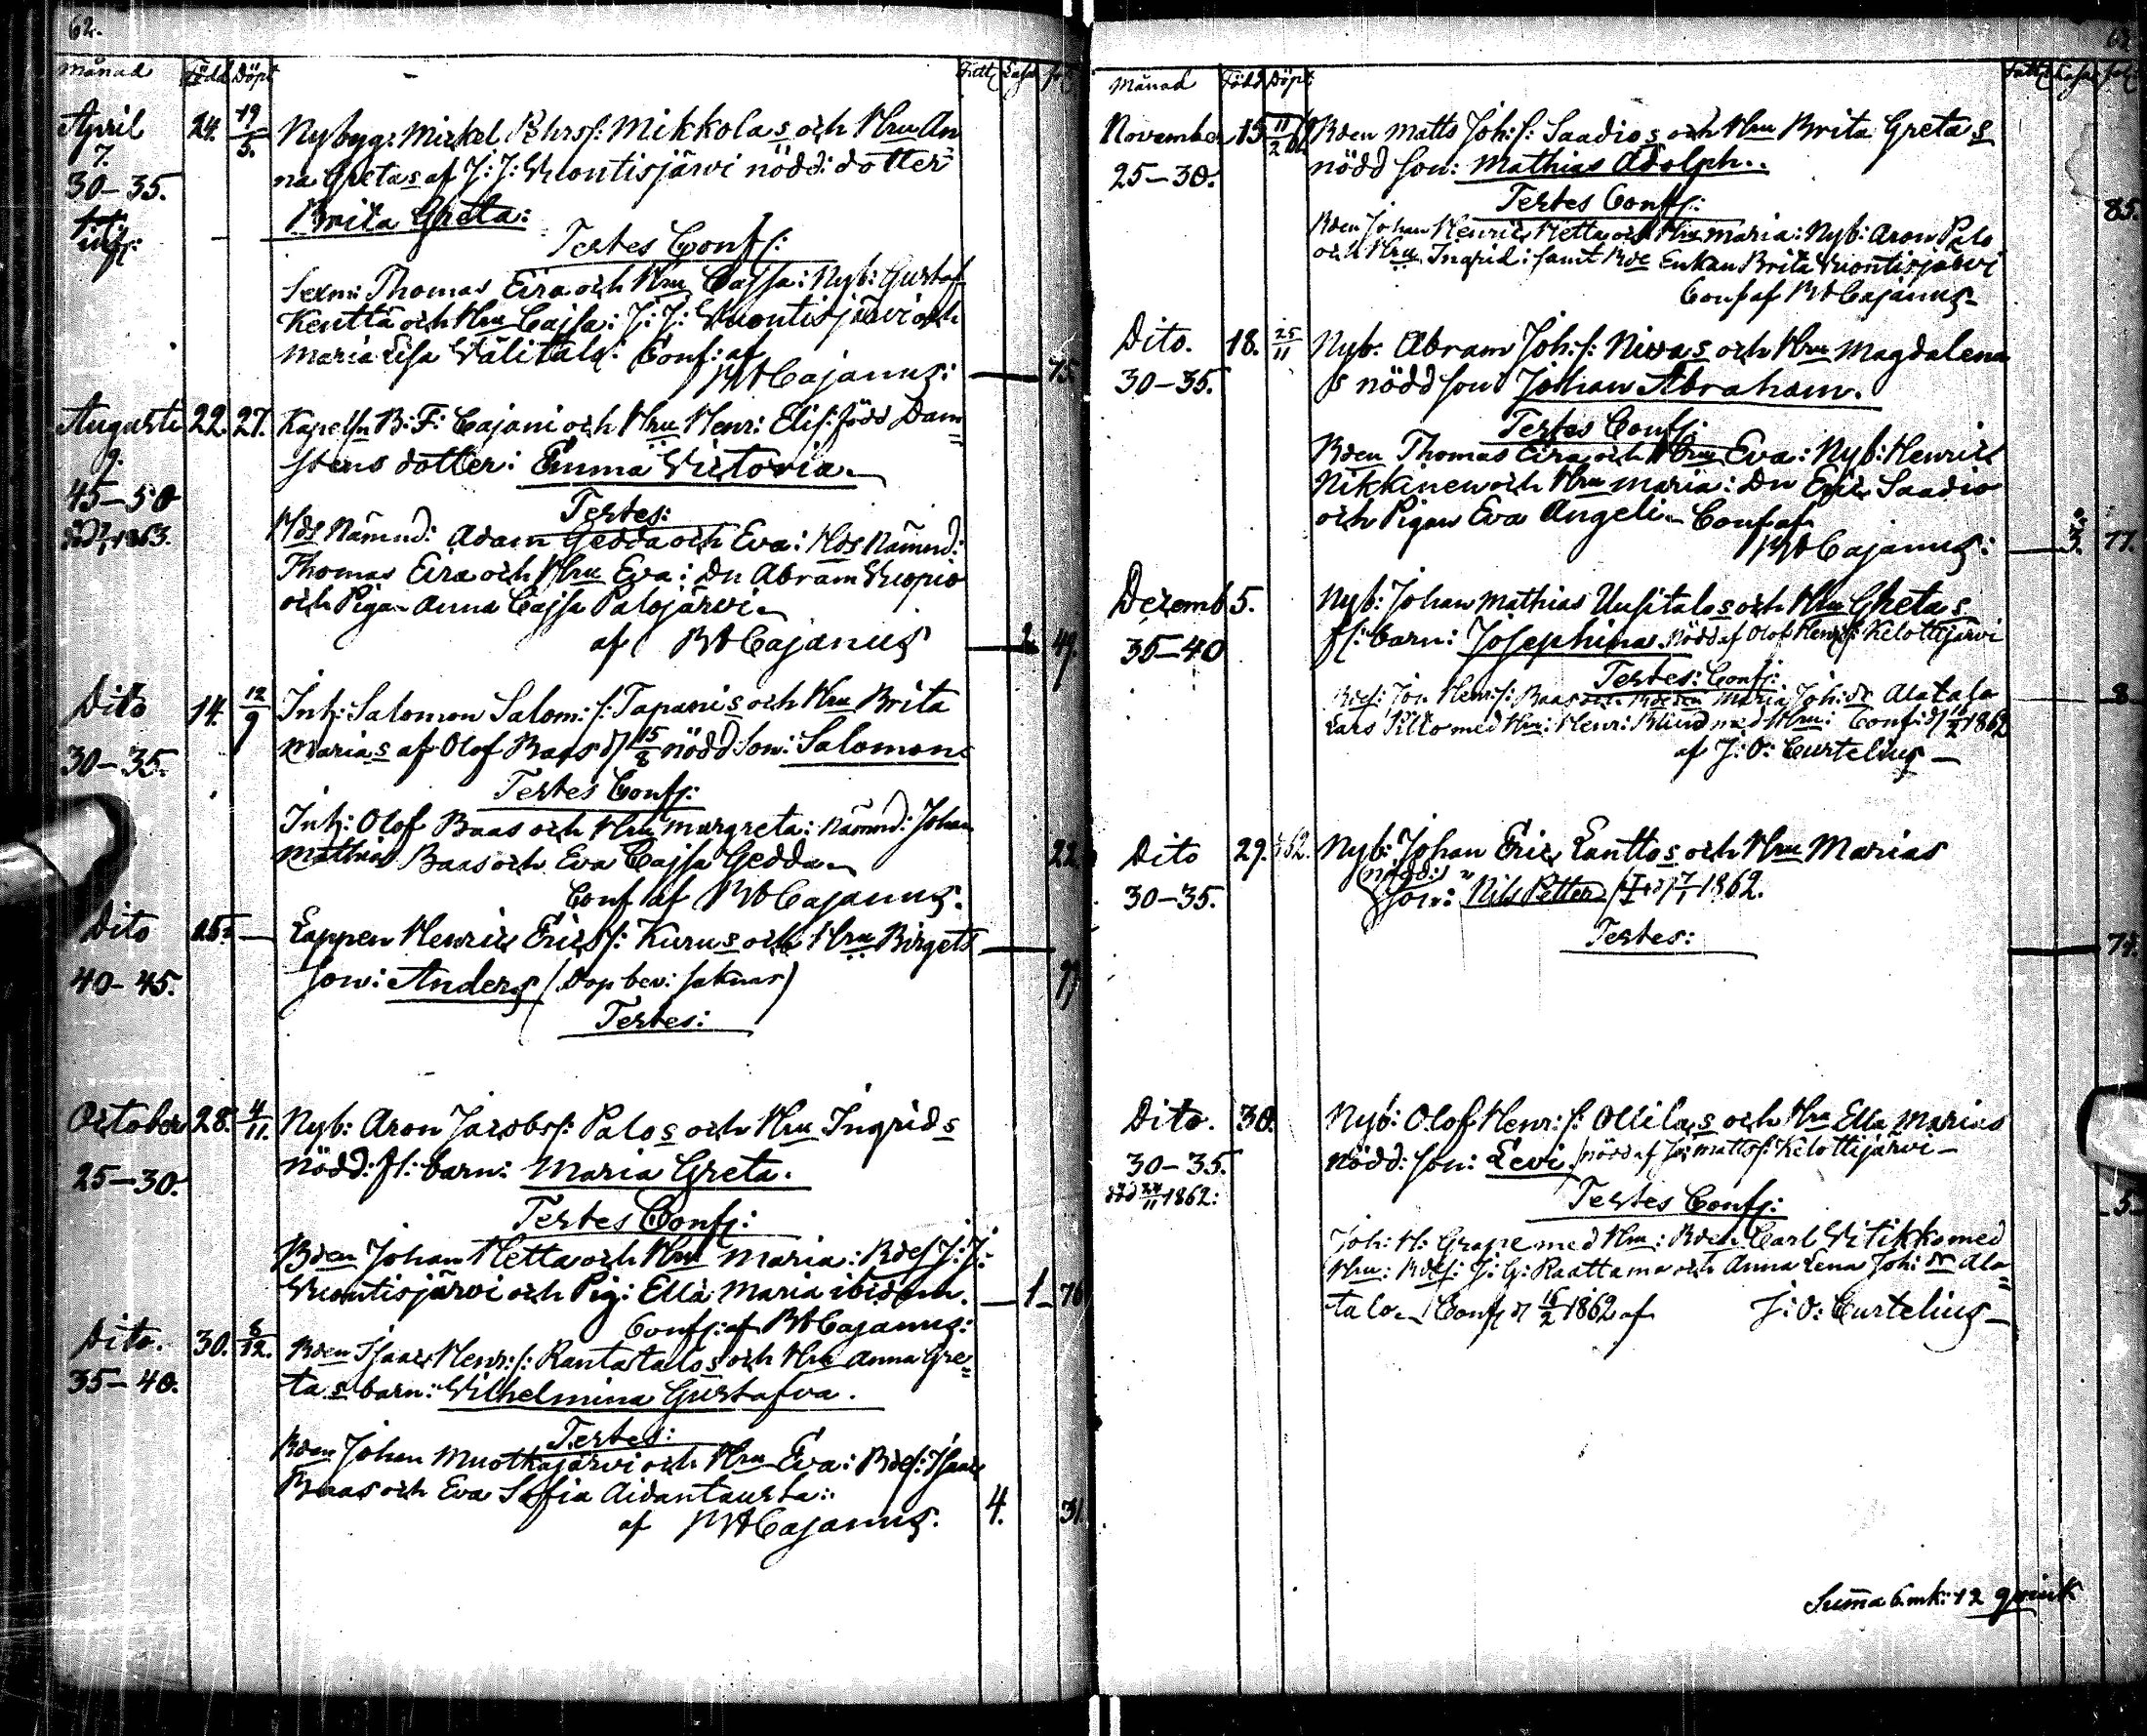 62.
Månad Född Döpt Fatt Lapp fol:
April 24. 19/5. Nybyg: Mickel Pehrss: Mikkolas och Hru An
7. na Gretas af J: J: Wuontisjärvi nödd: dotter
30-35. Brita Greta:
Testes Conf:
Sexm: Thomas Eira och Hru Cajsa: Nyb: Gustaf
Kenttä och Hru Cajsa: J: J: Wuontisjärvi och
Maria Lisa Wälitalo: Conf: af
Cajanus: 75.
Augusti 22. 27. Kapelln B: F: Cajani och Hru Henr: Elis: född Dam=
9. stens dotter: Emma Victoria.
45-50 Testes:
död 1863. Hds Nämnd: Adam Gedda och Eva: Hds Nämnd:
Thomas Eira och Hru Eva: Dn Abram Kuopio
och Pigan Anna Cajsa Palojärvi
af Cajanus 2. 49.
Dito 14. 12/9 Inh: Salomon Salom: s: Tapanis och Hru Brita
30-35. Marias af Olof Baas d 15/8 nödd Son: Salomon
Testes Conf:
Inh: Olof Baas och Hru Margreta: Nämnd: Johan
Mathias Baas och Eva Cajsa Gedda 22.
Conf af Cajanus.
Dito 25. Lappen Henric Ericss: Kurus och Hru Birgets
40-45. Son: Anders (Dop bev: saknas)
Testes:
October 28. 4/11. Nyb: Aron Jacobss: Palos och Hru Ingrids
25-30. nödd: fl: barn: Maria Greta.
Testes Conf:
Bden Johan Hetta och Hru Maria: Bdes J: J:
Wuontisjärvi och Pig: Ella Maria ibidem. 1 76
Conf: af Cajanus:
Dito. 30. 8/12. Bden Isaac Henr: s: Rantatalos och Hru Anna Gre=
35-40. tas barn: Wilhelmina Gustafva.
Testes:
Bden Johan Muotkajärvi och Hru Eva: Bdes: Isaac
Baas och Eva Sofia Aidantausta:
af Cajanus. 4. 31.
63.
Månad Född Döpt Fatt Lapp fol:
November 15 11/2 62 Bden Matts Joh: s: Saadios och Hru Brita Gretas
25-30. nödd son: Mathias Adolph..
Testes Conf: 85.
Bden Johan Henric Hetta och Hru Maria: Nyb: Aron Palo
och Hru Ingrid: samt Bde Enkan Brita Wuontisjärvi
Conf af Cajanus
Dito. 18. 25/11 Nyb. Abram Joh: s: Niwas och Hru Magdalena
30-35. s nödd son Johan Abraham.
Testes Conf:
Bden Thomas Eira och Hru Eva: Nyb: Henric
Nikkinen och Hru Maria: Dn Eric Saadio
och Pigan Eva Angeli Conf af
Cajanus: 3. 77.
Dezemb 5. Nyb: Johan Mathias Uusitalos och Hru Gretas
35-40 fl: barn: Josephina. nödd af Olof Henr: s: Kelottijärvi
Testes: Conf:
Bdes: Joh Henr: s: Baas och Maria Joh: dr Alatalo 8
Lars Killo med Hru: Henr: Blind med Hru: Conf: d 16/2 1862
af J: O: Curtelius
Dito 29. 862. Nyb: Johan Eric Lanttos och Hru Marias
30-35. (nödd:) Son: Nils Petter 1862.
Testes: 74.
Dito. 30. Nyb: Olof Henr: s: Ollilas och Hru Ella Marias
30-35. nödd: son: Levi. nödd af Joh: Mattss: Kelottijärvi
död 24/11 1862: Testes Conf: 5
Joh: H: Grape med Hru: Bden Carl Witikko med
Hru: Bdes: J: G: Raattama och Anna Lena Joh: dr Ala=
talo. Conf d 16/2 1862 af J: O: Curtelius
Summa 6. mk: 12 qvink